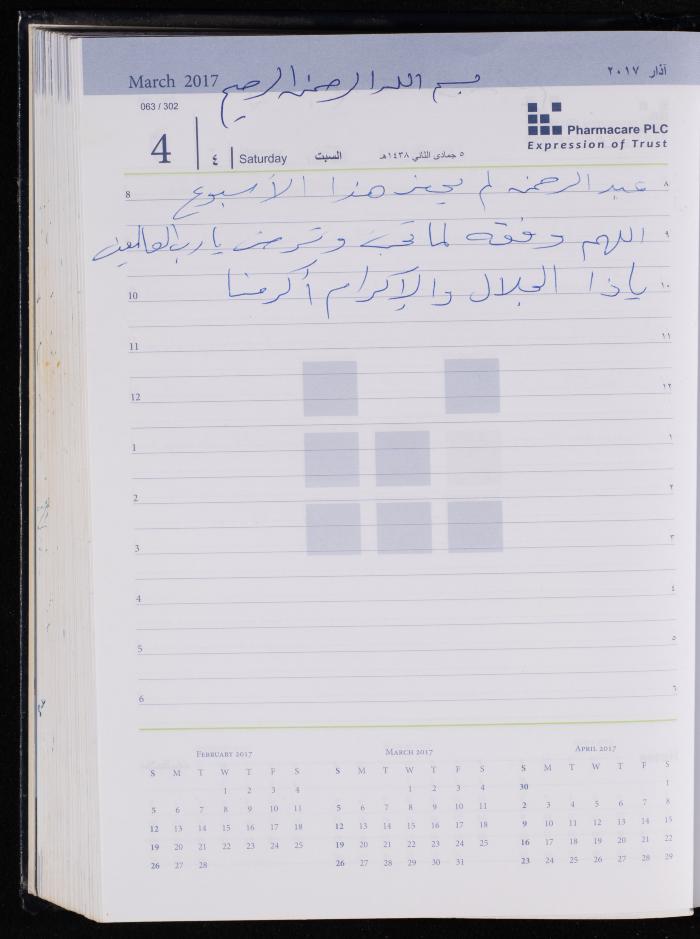 March 2017 بسم الله الرحمن الرحيم آذار ٢٠١٧
063 / 302
4 ٤ Saturday السبت ٥ جمادى الثاني ١٤٣٨هـ
Pharmacare PLC
Expression of Trust
8 عبد الرحمن لم يجئ هذا الأسبوع ٨
اللهم وفقه لما تحب وترضى يا رب العالمين ٩
10 ياذا الجلال والإكرام أكرمنا ١٠
11 ١١
12 ١٢
1 ١
2 ٢
3 ٣
4 ٤
5 ٥
6 ٦
February 2017
S M T W T F S
1 2 3 4
5 6 7 8 9 10 11
12 13 14 15 16 17 18
19 20 21 22 23 24 25
26 27 28
March 2017
S M T W T F S
1 2 3 4
5 6 7 8 9 10 11
12 13 14 15 16 17 18
19 20 21 22 23 24 25
26 27 28 29 30 31
April 2017
S M T W T F S
30 1
2 3 4 5 6 7 8
9 10 11 12 13 14 15
16 17 18 19 20 21 22
23 24 25 26 27 28 29